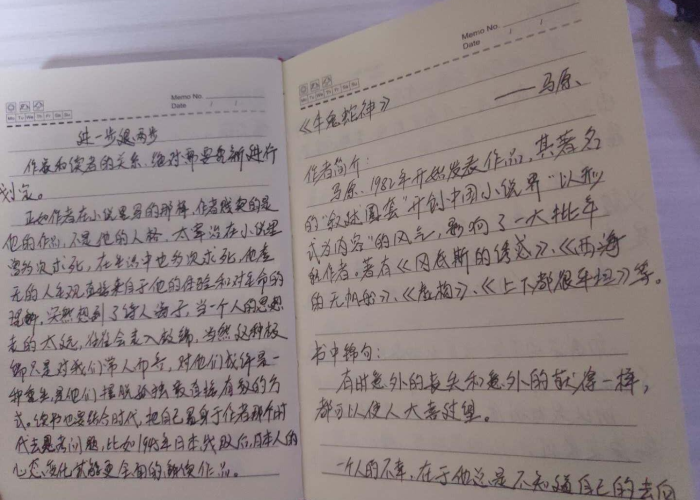 Memo No.
Date / /
Mo Tu We Th Fr Sa Su
进一步退两步
作家和读者的关系,绝对需要重新进行
划定。
正如作者在小说里写的那样,作者贩卖的是
他的作品,不是他的人格。太宰治在小说里
多次求死,在生活中也多次求死,他虚
无的人生观直接来自于他的经验和对生命的
理解。突然想到了诗人海子,当一个人的思想
走的太远,往往会走入歧路,当然这种极
端只是对我们常人而言,对他们或许是一
种重生,是他们摆脱孤独最直接有效的方
式。读书也要结合时代,把自己置身于作者那个时
代去思考问题,比如1945年日本战败后,日本人的
心态变化才能更全面的解读作品。
Memo No.
Date / /
Mo Tu We Th Fr Sa Su
《牛鬼蛇神》
——马原、
作者简介:
马原、1982年开始发表作品,其著名
的“叙述圈套”开创中国小说界“以形
式为内容”的风气,影响了一大批年
轻作者。著有《冈底斯的诱惑》、《西海
的无帆船》、《虚构》、《上下都很平坦》等。
书中锦句:
有时意外的丧失和意外的获得一样,
都可以使人大喜过望。
一个人的不幸,在于他总是不知道自己的去向